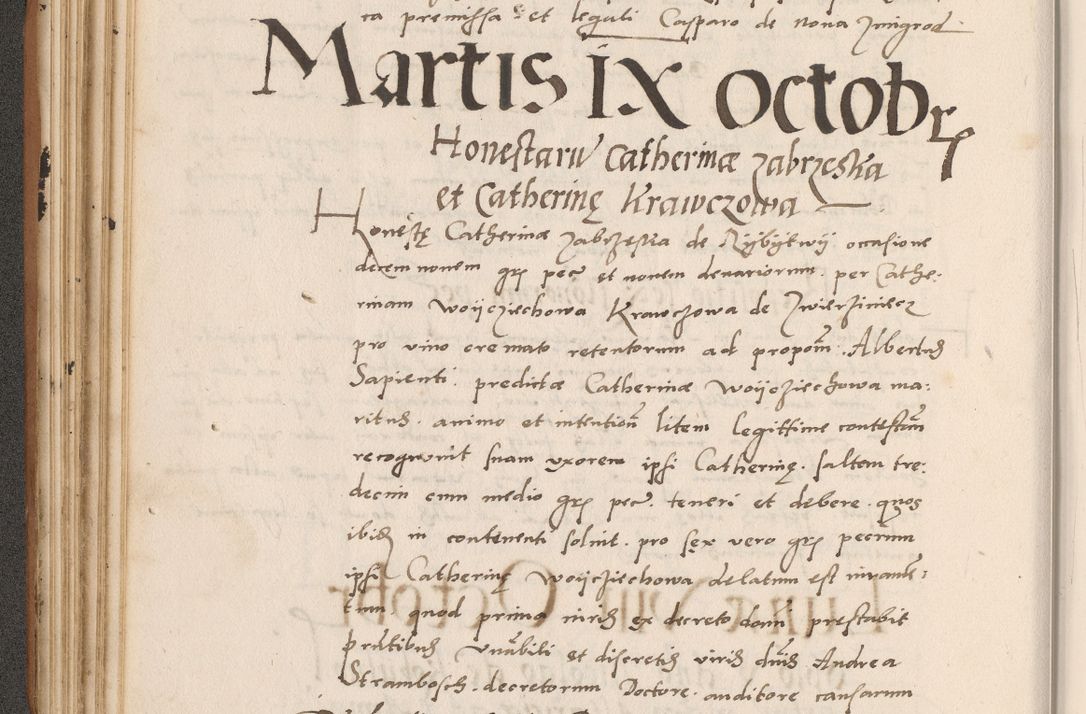 ca premissa et legali Casparo de nona Zmigrod
Martis IX Octobr
Honestaru Catherinæ Zabrzeska
et Catherinę Krawczowa
Honestę Catherinæ Zabrzeska de Rÿbÿtwÿ occasione
decem nonem grs pecu et nonem denariorum per Cathe-
rinam Woÿcziechowa Krawczowa de Zwierziniecz
pro vino cremato retentorum ad propom̃ Albertus
Sapienti predictæ Catherinæ Woÿcziechowa ma-
ritus animo et intentioñ litem legittime contestam̃
recognouit suam vxorem ipsi Catherinę saltem tre-
decim cum medio grs pecu teneri et debere quos
ibid in continenti soluit pro sex vero grs pecrum
ipsi Catherinę Woÿcziechowa delatum est iuramen-
tum quod prima iuris ex decreto domi prestabit
pñtibus vñabili et discretis viris dñis Andrea
Strambosch decretorum Doctore auditore causarum